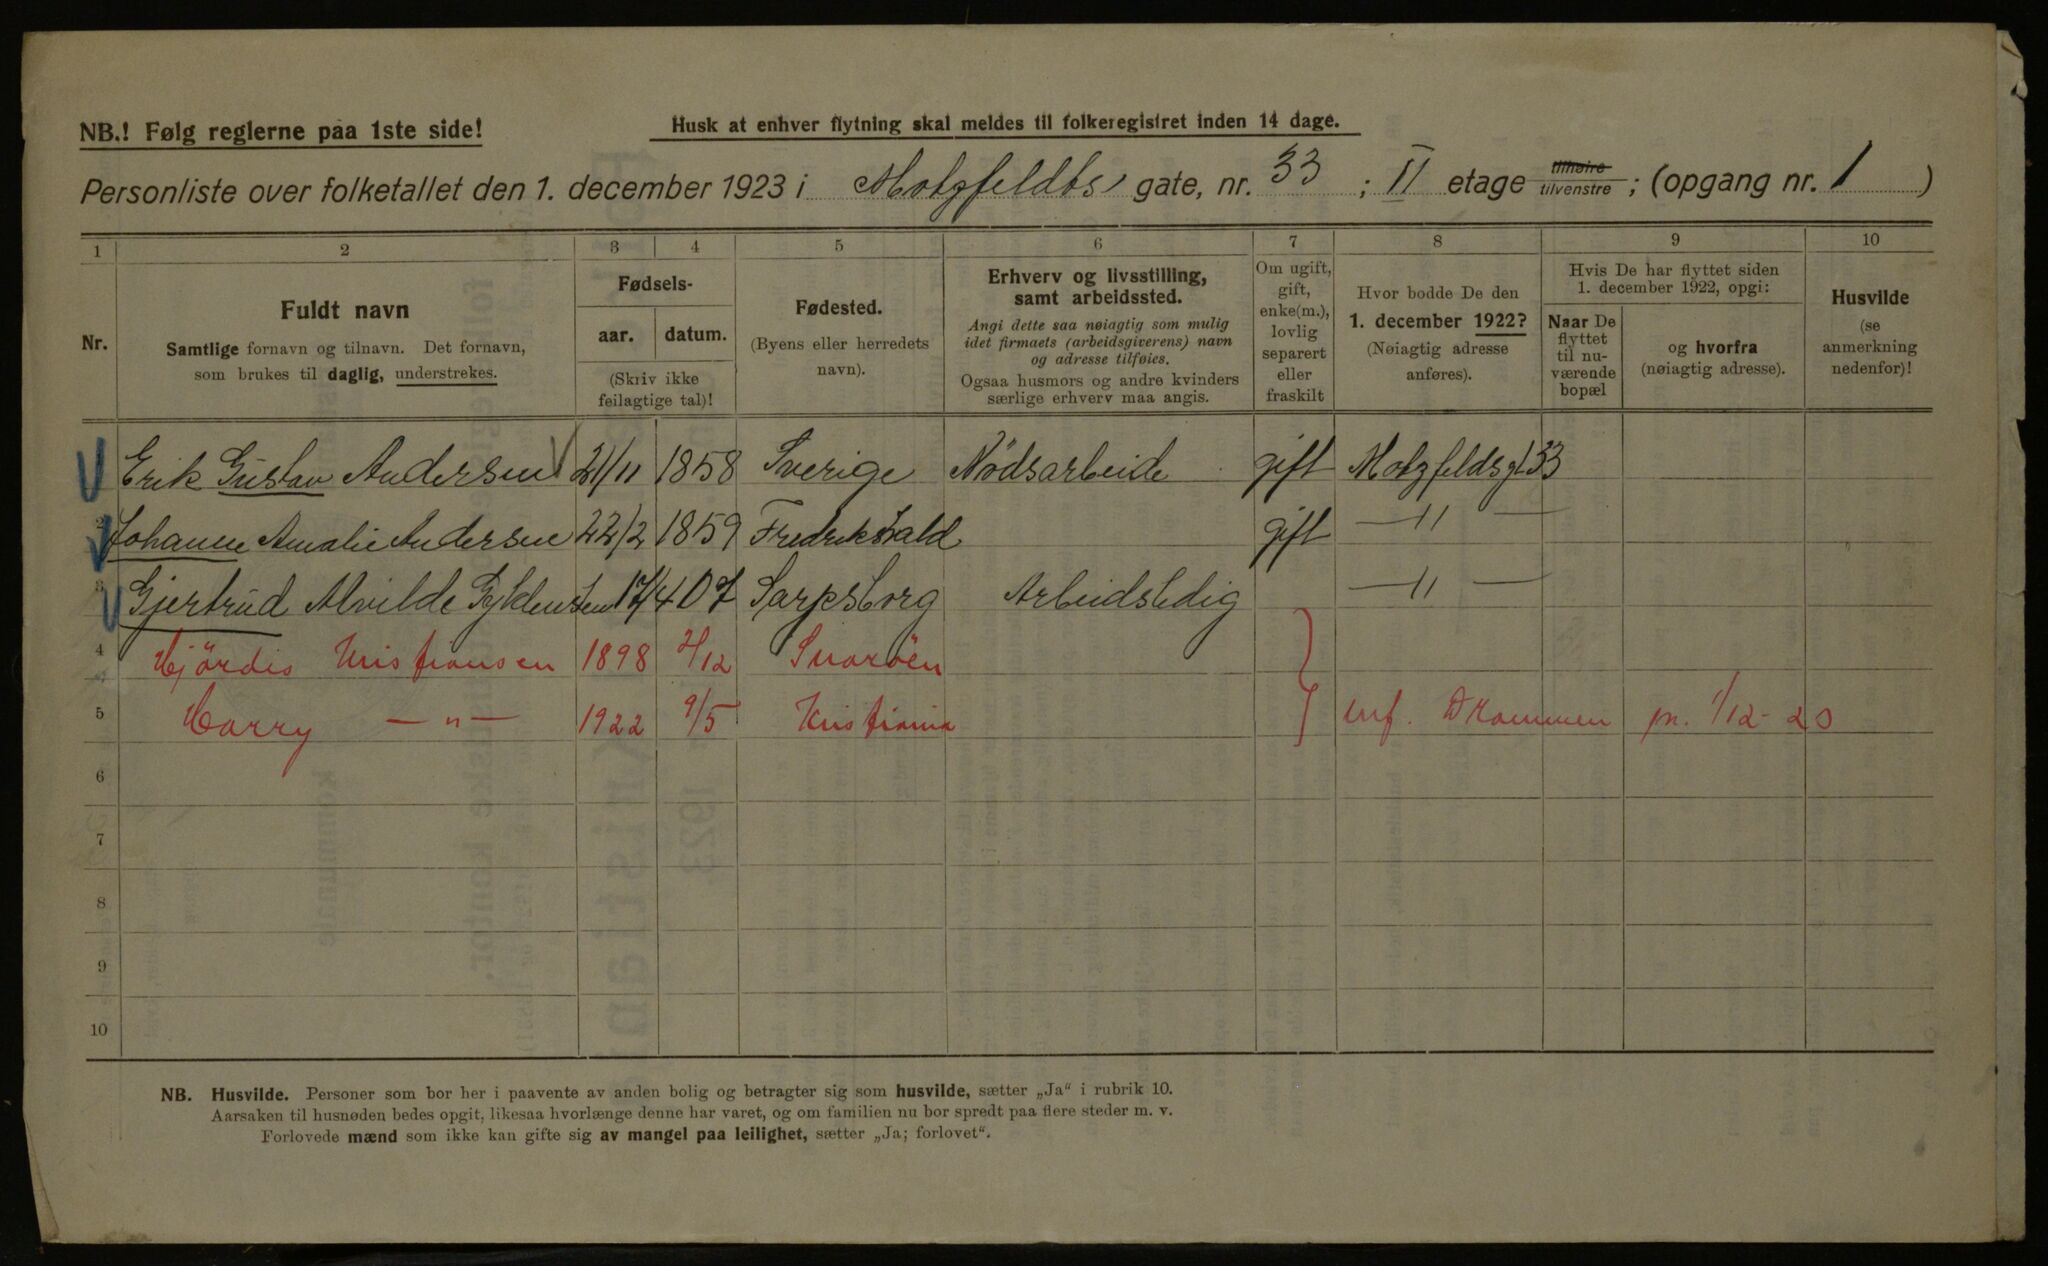 NB.! Følg reglerne paa 1ste side!
Husk at enhver flytning skal meldes til folkeregistret inden 14 dage.
Personliste over folketallet den 1. december 1923 i Motzfeldts gate, nr. 33 ; II etage tilhøire tilvenstre ; (opgang nr. 1 )
1 2 3 4 5 6 7 8 9 10
Nr.
Fuldt navn
Samtlige fornavn og tilnavn. Det fornavn,
som brukes til daglig, understrekes.
Fødsels-
aar. datum.
(Skriv ikke
feilagtige tal)!
Fødested.
(Byens eller herredets
navn).
Erhverv og livsstilling,
samt arbeidssted.
Angi dette saa nøiagtig som mulig
idet firmaets (arbeidsgiverens) navn
og adresse tilføies.
Ogsaa husmors og andre kvinders
særlige erhverv maa angis.
Om ugift,
gift,
enke(m.),
lovlig
separert
eller
fraskilt
Hvor bodde De den
1. december 1922?
(Nøiagtig adresse
anføres).
Hvis De har flyttet siden
1. december 1922, opgi:
Naar De
flyttet
til nu-
værende
bopæl
og hvorfra
(nøiagtig adresse).
Husvilde
(se
anmerkning
nedenfor)!
Erik Gustav Andersen 21/11 1858 Sverige Nödsarbeide gift Motzfeldsgt 33
2 Johanne Amalie Andersen 22/2 1859 Fredrikshald gift — 11 —
3 Gjertrud Alvilde 17/4 07 Sarpsborg Arbeidsledig — 11 —
4 Hjördis Kristiansen 1898 2/12 Snaröen
5 Harry — " — 1922 9/5 Kristiania inf. Drammen pr. 1/12-23
6
7
8
9
10
NB. Husvilde. Personer som bor her i paavente av anden bolig og betragter sig som husvilde, sætter „Ja“ i rubrik 10.
Aarsaken til husnøden bedes opgit, likesaa hvorlænge denne har varet, og om familien nu bor spredt paa flere steder m. v.
Forlovede mænd som ikke kan gifte sig av mangel paa leilighet, sætter „Ja; forlovet“.